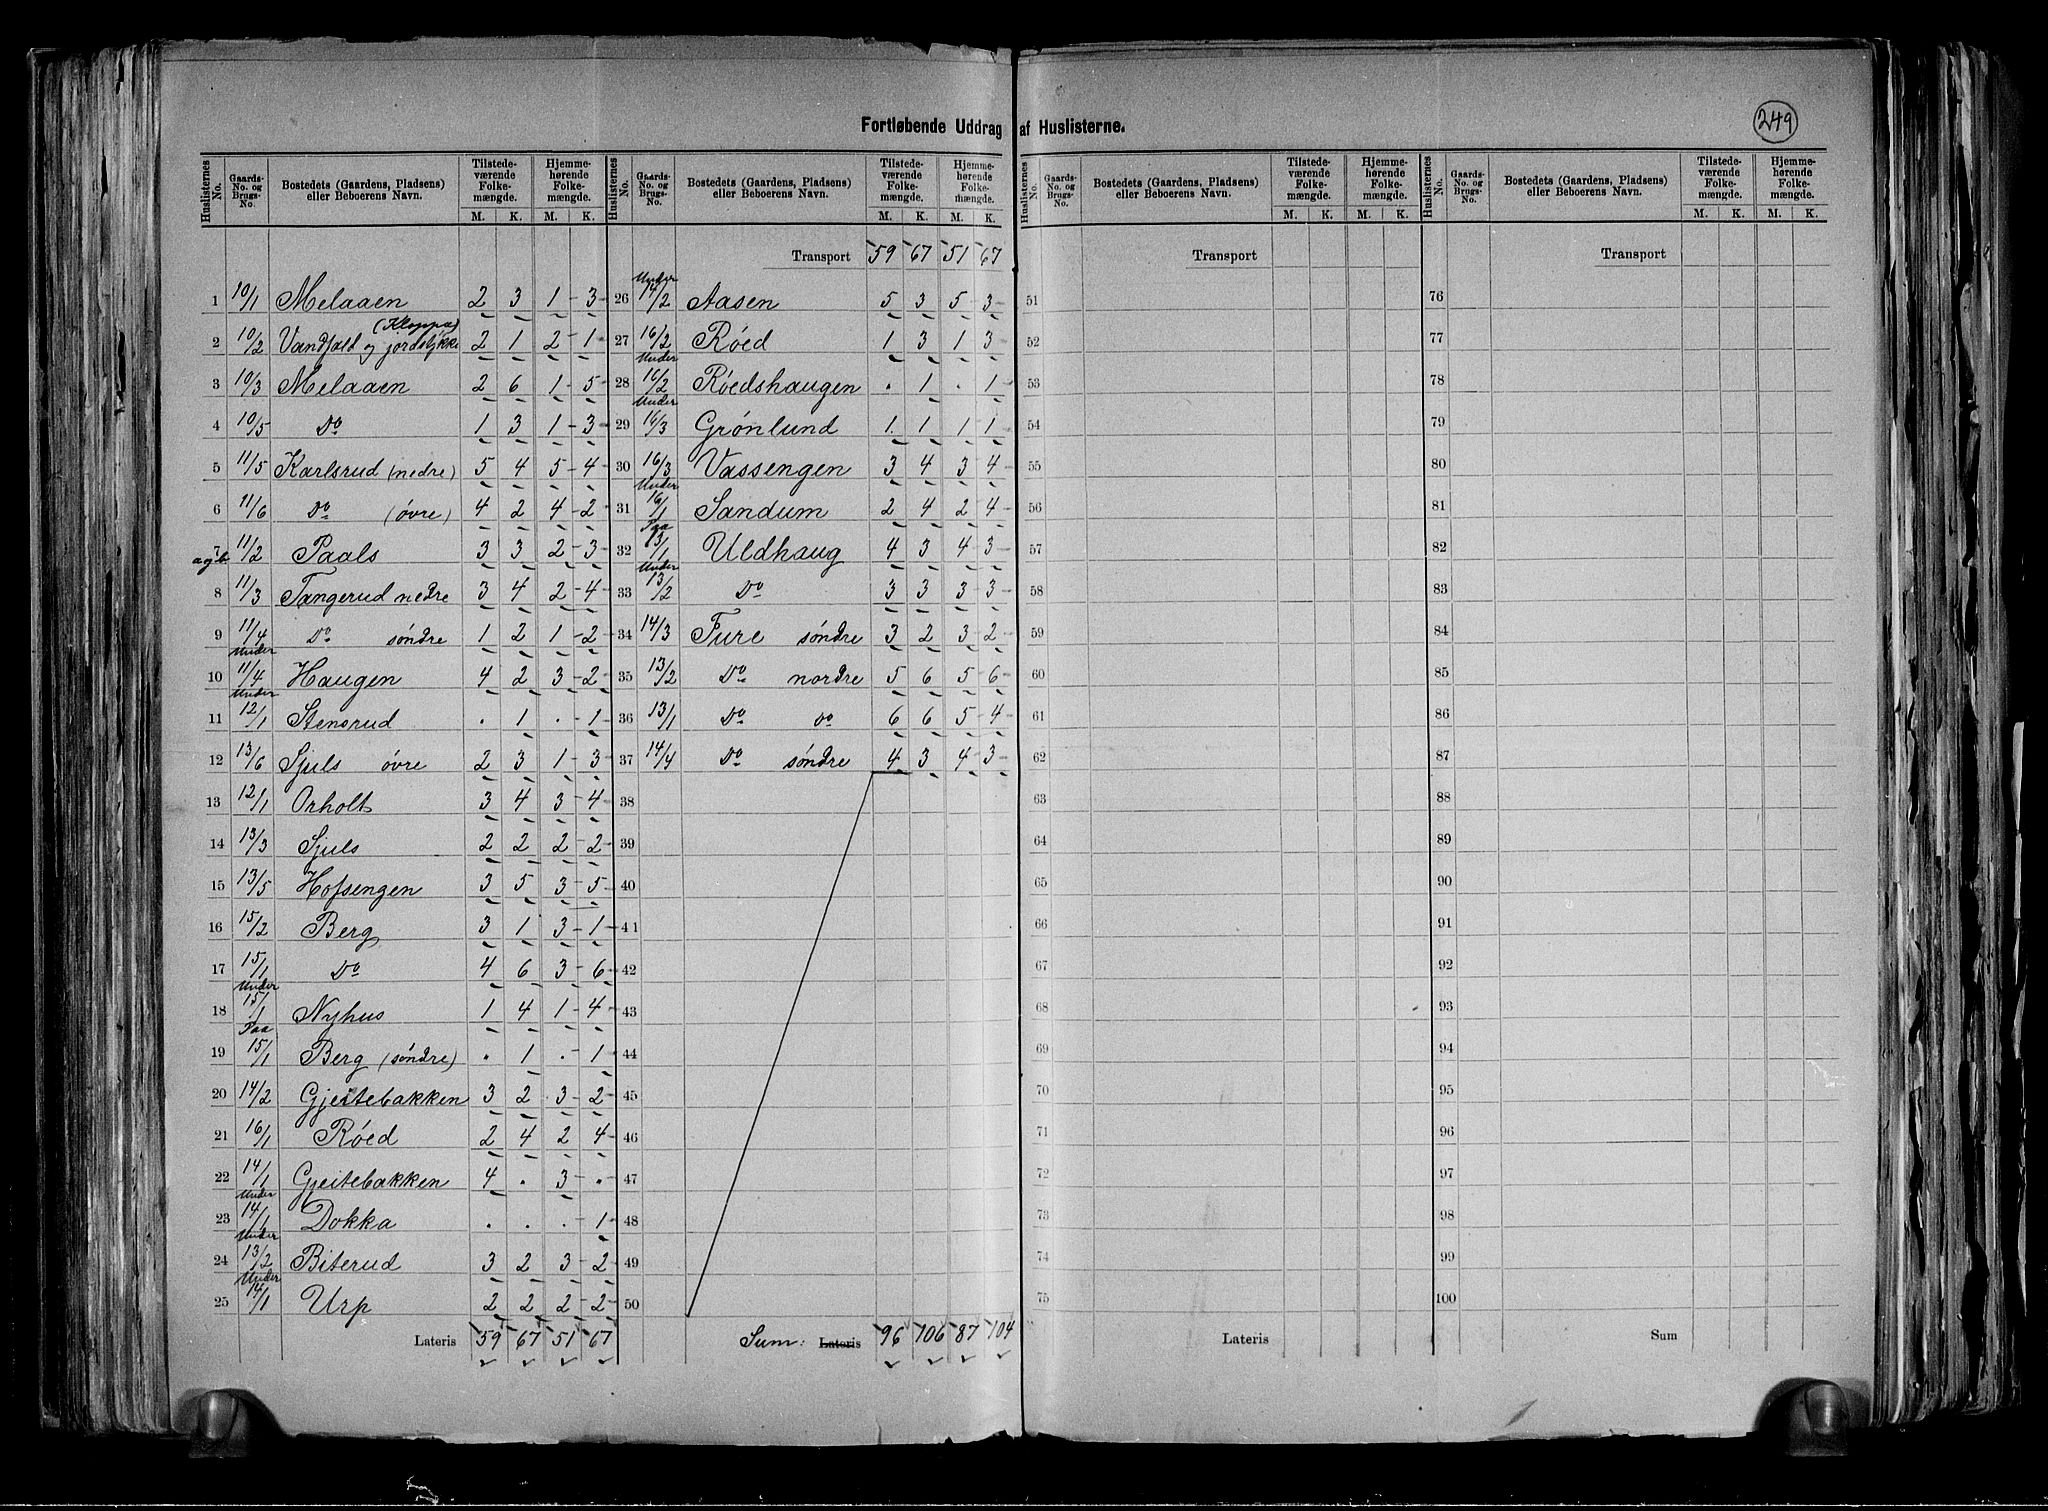 249
Fortløbende Uddrag af Huslisterne.
Huslisternes No. | Gaards-No. og Brugs-No. | Bostedets (Gaardens, Pladsens) eller Beboerens Navn. | Tilstedeværende Folkemængde. M. K. | Hjemmehørende Folkemængde. M. K.
1 10/1 Melaaen 2 3 1 - 3
2 10/2 Vandfald og jordstykke (Kloppa) 2 1 2 - 1
3 10/3 Melaaen 2 6 1 - 5
4 10/5 Do 1 3 1 - 3
5 11/5 Karlsrud (nedre) 5 4 5 - 4
6 11/6 Do (øvre) 4 2 4 - 2
7 agb. 11/2 Paals 3 3 2 - 3
8 11/3 Tangerud nedre 3 4 2 - 4
9 11/4 Do søndre 1 2 1 - 2
10 Under 11/4 Haugen 4 2 3 - 2
11 Under 12/1 Stensrud . 1 . - 1
12 13/6 Sjuls øvre 2 3 1 - 3
13 12/1 Orholt 3 4 3 - 4
14 13/3 Sjuls 2 2 2 - 2
15 13/5 Hofsengen 3 5 3 - 5
16 15/2 Berg 3 1 3 - 1
17 15/1 Do 4 6 3 - 6
18 Under 15/1 Nyhus 1 4 1 - 4
19 Paa 15/1 Berg (søndre) . 1 . - 1
20 14/2 Gjeitebakken 3 2 3 - 2
21 16/1 Røed 2 4 2 4
22 14/1 Gjeitebakken 4 . 3 - .
23 Under 14/1 Dokka . . . - 1
24 Under 13/2 Biterud 3 2 3 - 2
25 Under 14/1 Urp 2 2 2 - 2
Lateris 59 67 51 67
Huslisternes No. | Gaards-No. og Brugs-No. | Bostedets (Gaardens, Pladsens) eller Beboerens Navn. | Tilstedeværende Folkemængde. M. K. | Hjemmehørende Folkemængde. M. K.
Transport 59 67 51 67
26 Under 14/2 Aasen 5 3 5 - 3
27 16/2 Røed 1 3 1 3
28 Under 16/2 Røedshaugen . 1 . 1
29 Under 16/3 Grønlund 1 1 1 1
30 16/3 Vassengen 3 4 3 4
31 Under 16/1 Sandum 2 4 2 4
32 Paa 13/1 Uldhaug 4 3 4 3
33 Under 13/2 Do 3 3 3 3
34 14/3 Fure søndre 3 2 3 2
35 13/2 Do nordre 5 6 5 6
36 13/1 Do do 6 6 5 4
37 14/4 Do søndre 4 3 4 3
38
39
40
41
42
43
44
45
46
47
48
49
50
Sum: Lateris 96 106 87 104
Huslisternes No. | Gaards-No. og Brugs-No. | Bostedets (Gaardens, Pladsens) eller Beboerens Navn. | Tilstedeværende Folkemængde. M. K. | Hjemmehørende Folkemængde. M. K.
Transport
51
52
53
54
55
56
57
58
59
60
61
62
63
64
65
66
67
68
69
70
71
72
73
74
75
Lateris
Huslisternes No. | Gaards-No. og Brugs-No. | Bostedets (Gaardens, Pladsens) eller Beboerens Navn. | Tilstedeværende Folkemængde. M. K. | Hjemmehørende Folkemængde. M. K.
Transport
76
77
78
79
80
81
82
83
84
85
86
87
88
89
90
91
92
93
94
95
96
97
98
99
100
Sum